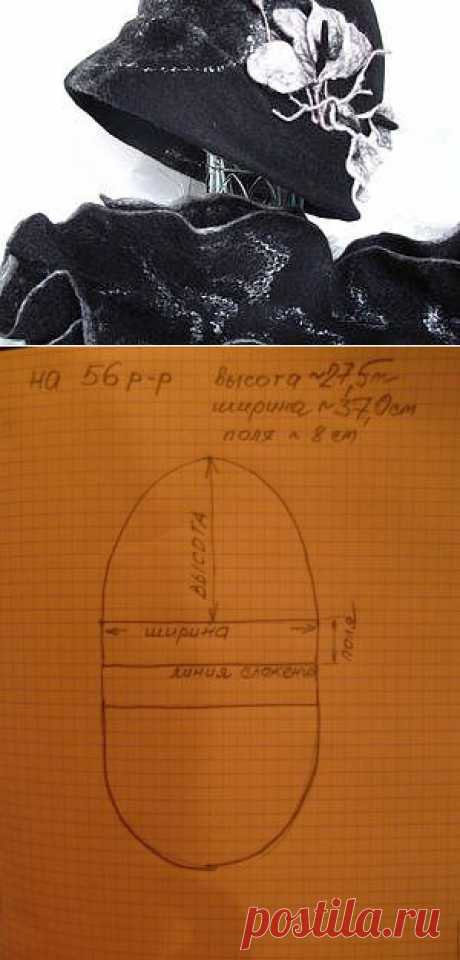 на 56 р-р высота ~27,5см
ширина ~37,0см
поля ~ 8 см
высота
ширина
поля
линия сложения
postila.ru